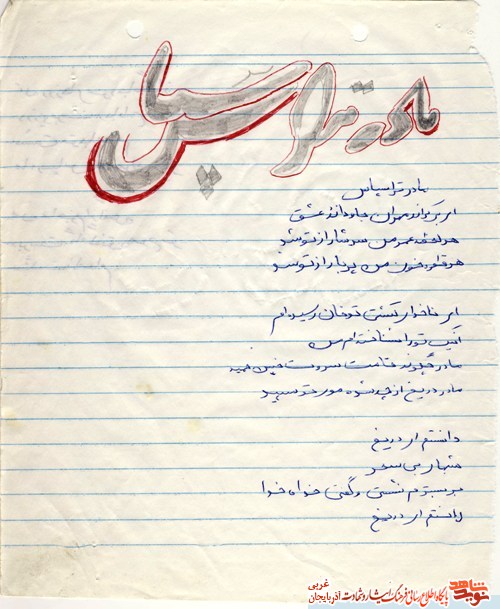 مادر ترا سپاس
مادر ترا سپاس
ای بر کرانه دوران جاودانه عشق
هر لحظه عمر من سرشار از تو شد
هر قطره خون من پر بار از تو شد
ای ناخدای کشتی توفان رسیده ام
اینک تو را شناخته ام من
مادر چگونه قامت سروت چنین خمید
مادر دریغ از چه شد موی تو سپید
دانستم ای دریغ
شبهای بی سحر
بر بسترم نشستی و گفتی خدا خدا
دانستم ای دریغ
نوید شاهد
پایگاه اطلاع رسانی فرهنگ ایثار و شهادت آذربایجان غربی